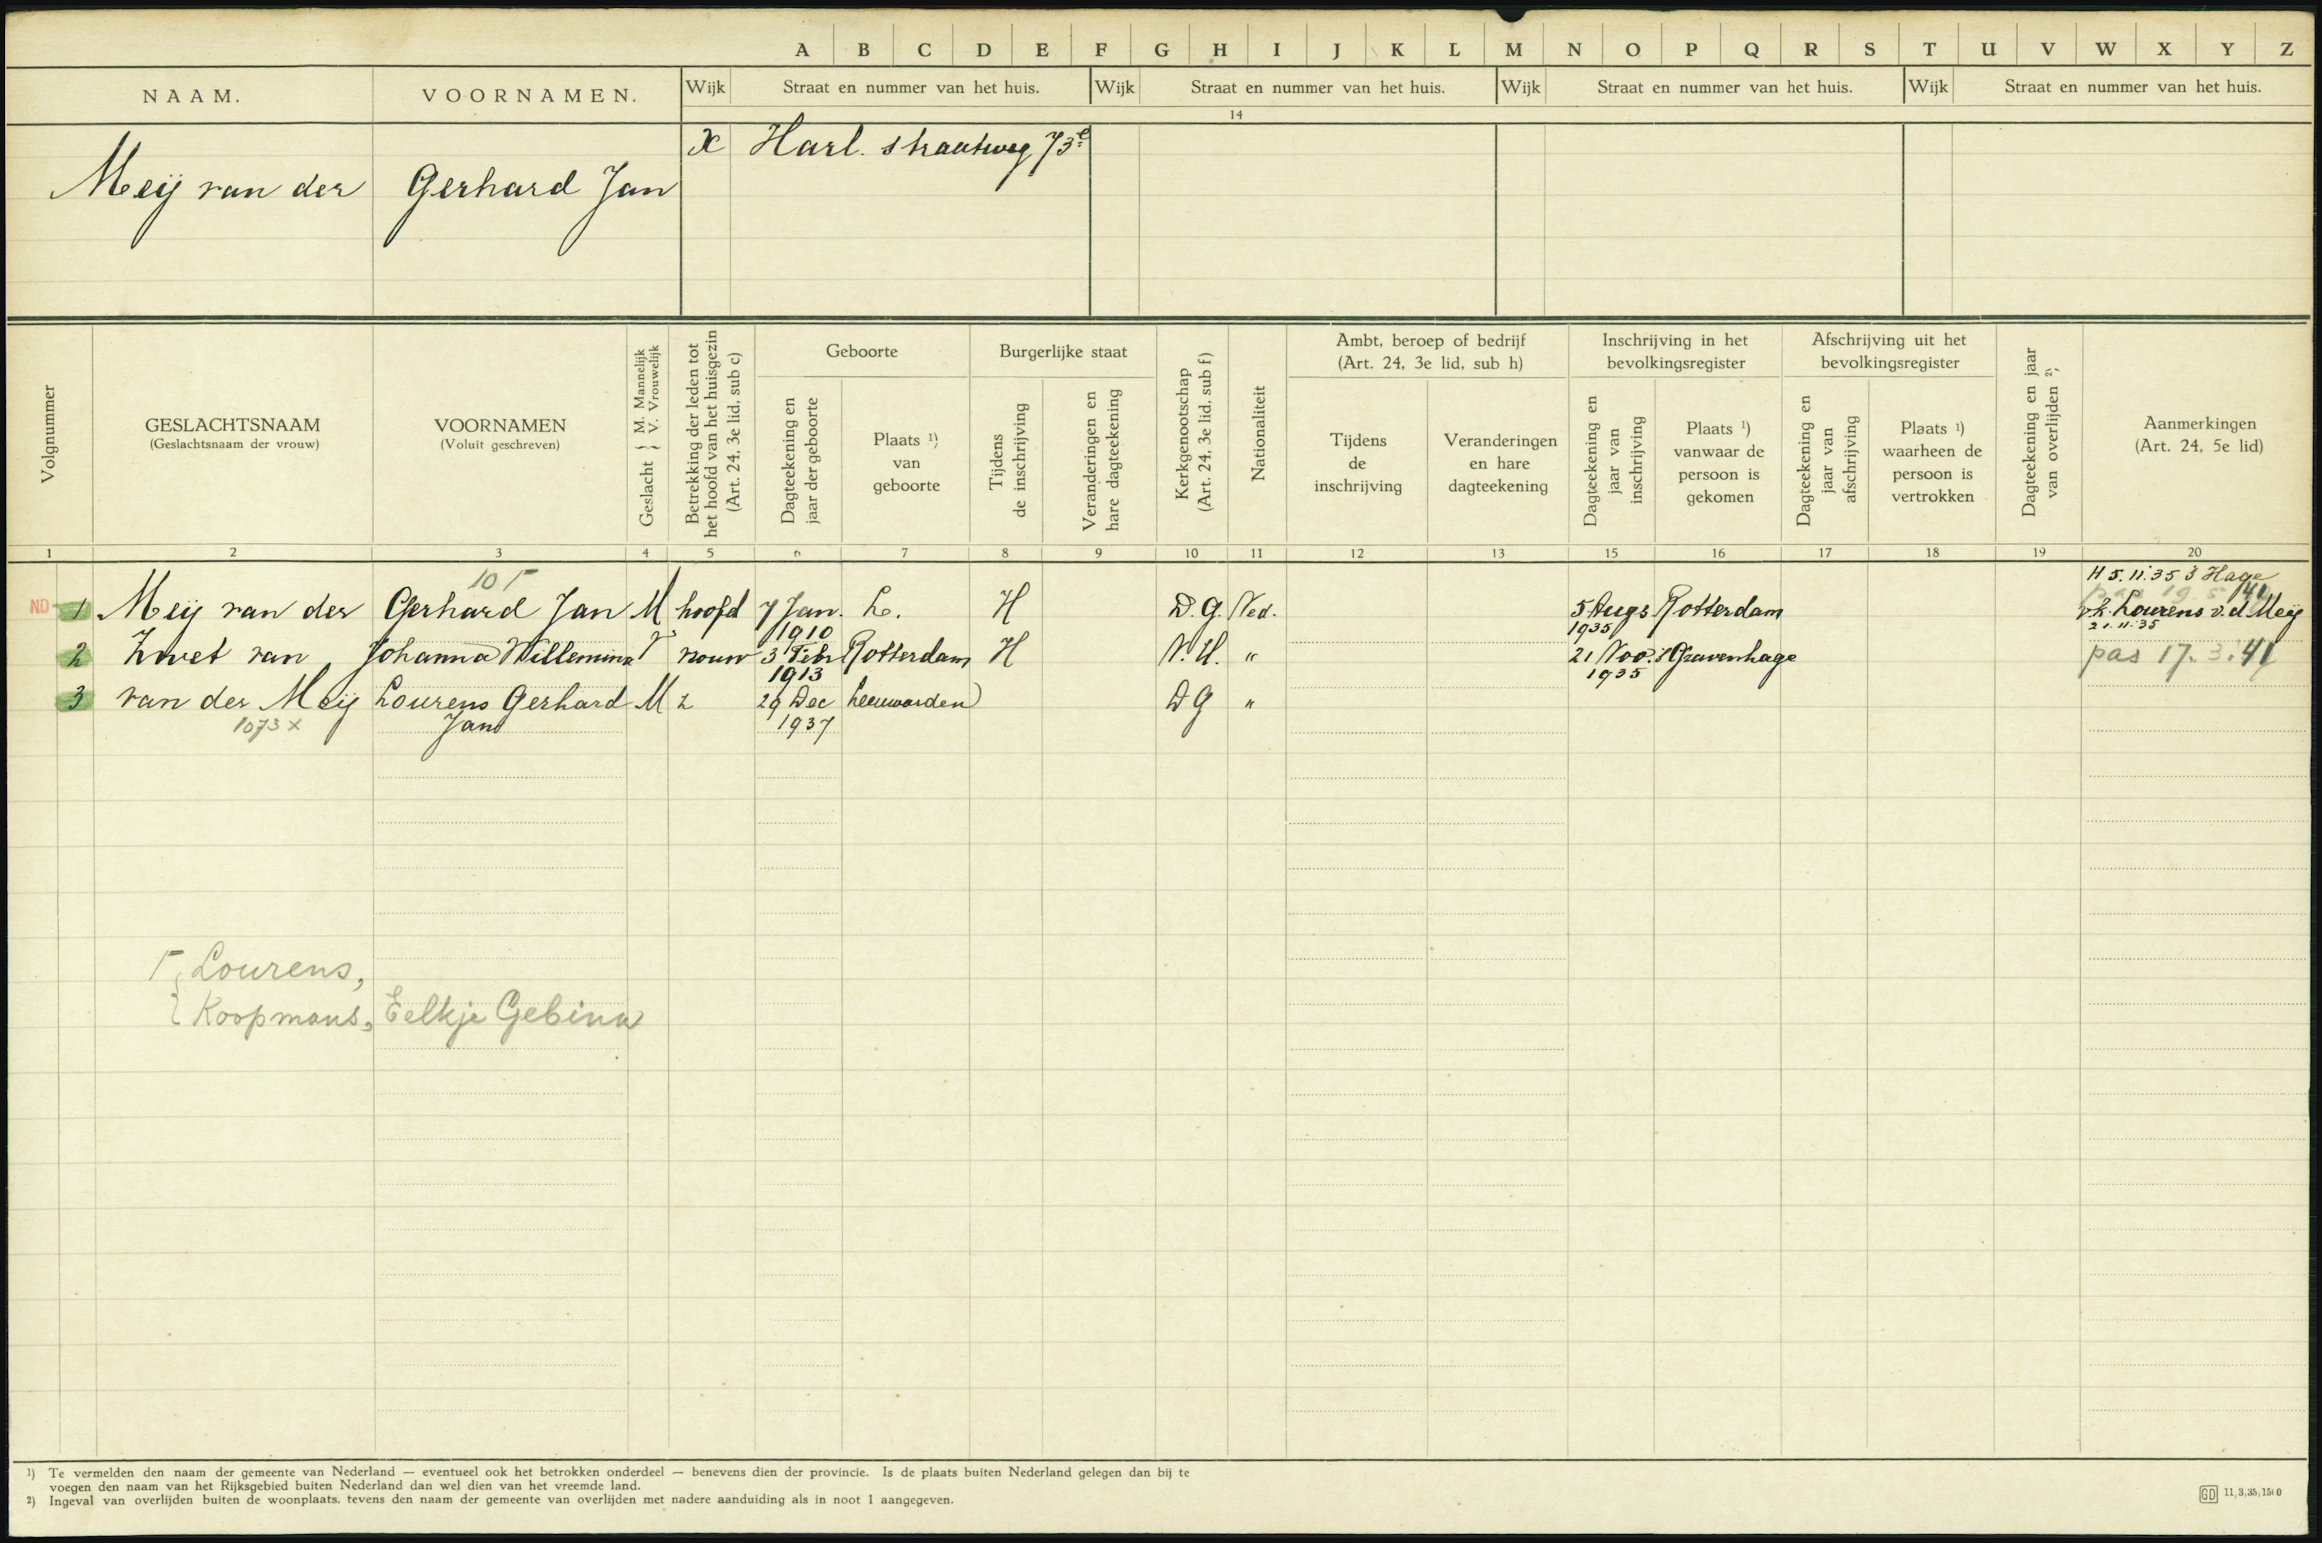 A B C D E F G H I J K L M N O P Q R S T U V W X Y Z
NAAM. VOORNAMEN. Wijk Straat en nummer van het huis. Wijk Straat en nummer van het huis. Wijk Straat en nummer van het huis. Wijk Straat en nummer van het huis.
14
X Harl. straatweg 73e
Meij van der Gerhard Jan
Volgnummer
GESLACHTSNAAM
(Geslachtsnaam der vrouw)
VOORNAMEN
(Voluit geschreven)
Geslacht } M. Mannelijk
V. Vrouwelijk
Betrekking der leden tot
het hoofd van het huisgezin
(Art. 24, 3e lid, sub c)
Geboorte
Dagteekening en
jaar der geboorte
Plaats 1)
van
geboorte
Burgerlijke staat
Tijdens
de inschrijving
Veranderingen en
hare dagteekening
Kerkgenootschap
(Art. 24, 3e lid, sub f)
Nationaliteit
Ambt, beroep of bedrijf
(Art. 24, 3e lid, sub h)
Tijdens
de
inschrijving
Veranderingen
en hare
dagteekening
Inschrijving in het
bevolkingsregister
Dagteekening en
jaar van
inschrijving
Plaats 1)
vanwaar de
persoon is
gekomen
Afschrijving uit het
bevolkingsregister
Dagteekening en
jaar van
afschrijving
Plaats 1)
waarheen de
persoon is
vertrokken
Dagteekening en jaar
van overlijden 2)
Aanmerkingen
(Art. 24, 5e lid)
1 2 3 4 5 6 7 8 9 10 11 12 13 15 16 17 18 19 20
H 5.11.35 's Hage
ND 1 Meij van der Gerhard Jan M hoofd 7 Jan. L. H D.G. Ned. 5 Augs Rotterdam Lourens v.d. Meij
1910 1935 21.11.35
2 Zwet van Johanna Willemina V vrouw 3 Febr Rotterdam H N.H. " 21 Nov. 's Gravenhage pas 17.3.41
1913 1935
3 van der Meij Lourens Gerhard M z 29 Dec Leeuwarden DG "
1073 x Jan 1937
Lourens,
Koopmans, Eelkje Gebina
1) Te vermelden den naam der gemeente van Nederland — eventueel ook het betrokken onderdeel — benevens dien der provincie. Is de plaats buiten Nederland gelegen dan bij te
voegen den naam van het Rijksgebied buiten Nederland dan wel dien van het vreemde land.
2) Ingeval van overlijden buiten de woonplaats, tevens den naam der gemeente van overlijden met nadere aanduiding als in noot 1 aangegeven.
GD 11,3,35,1500